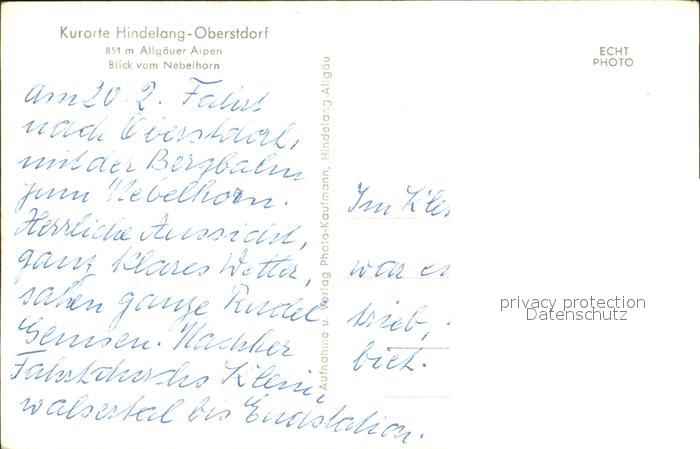 Kurorte Hindelang-Oberstdorf
851 m Allgäuer Alpen
Blick vom Nebelhorn
ECHT
PHOTO
Am 20. 2. Fahrt
nach Oberstdorf,
mit der Bergbahn
zum Nebelhorn.
Herrliche Aussicht,
ganz klares Wetter,
sahen ganze Rudel
Gemsen. Nachher
Fahrt durchs Klein-
walsertal bis Endstation.
Aufnahme u. Verlag Photo-Kaufmann, Hindelang Allgäu
Im Klei
war ei
trieb,
biet.
privacy protection
Datenschutz